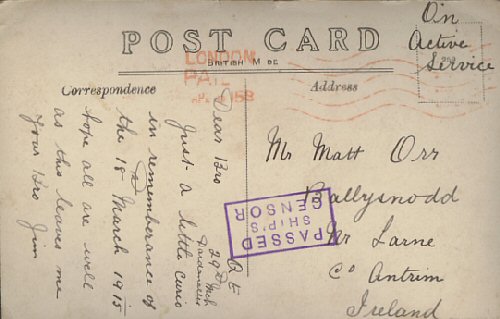 POST CARD
BRITISH M DE
LONDON
PAI
On
Active
Service
Correspondence
Address
Q E
29th Mch
Dardanelles
Dear Bro
Just a little curio
in rememberance of
the 18th March 1915
hope all are well
as this leaves me
Your Bro Jim
Mr Matt Orr
Ballysnodd
Nr Larne
Co Antrim
Ireland
PASSED
SHIP'S
CENSOR